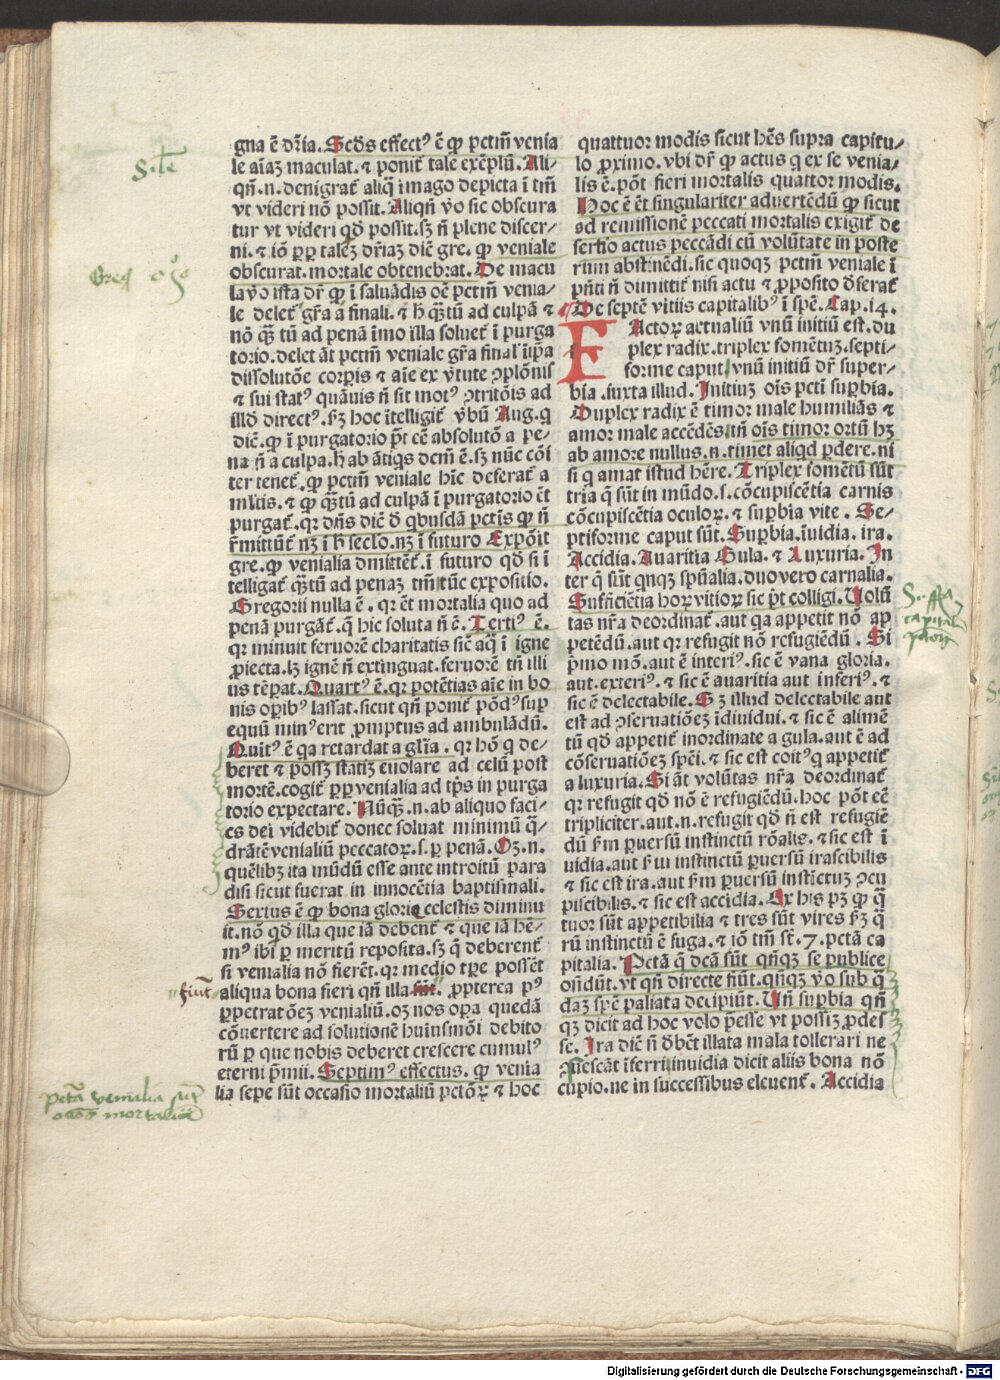 gna ē dr̄ia. Scd̄s effectꝰ ē ꝙ pctm̄ venia
le aīaꝫ maculat. ⁊ ponit̄ tale exēplū. Ali-
qn̄.n. denigrat̄ aliq̄ imago depicta ī tm̄
vt videri nō possit. Aliqn̄ v̄o sic obscura
tur vt videri qd̄ possit. sꝫ n̄ plene discer-
ni. ⁊ iō ꝓp talēꝫ dr̄iaꝫ dic̄ gre. ꝙ veniale
obscurat. mortale obtenebrat. De macu
la v̄o ista dr̄ ꝙ ī saluādis oē pctm̄ venia-
le delet̄ gr̄a a finali. ⁊ h̄ q̄ꝫtū ad culpā ⁊
nō q̄ꝫ tū ad penā īmo illa soluet̄ ī purga
torio. delet āt pctm̄ veniale gr̄a final̄ ip̄a
dissolutōe corp̄is ⁊ aīe ex v̄tute ꝯplōnis
⁊ sui statꝰ quāuis n̄ sit motꝰ ꝯtritōis ad
illd̄ directꝰ. ẜꝫ hoc ītelligit̄ v̄bū Aug. q
dic̄. ꝙ ī purgatorio p̄t eē absolutō a pe-
na n̄ a culpa. h̄ ab ātiqs dcm̄ ē. sꝫ nūc cōi
ter tenet̄. ꝙ pctm̄ veniale hīc deferat̄ a
mltis. ⁊ ꝙ q̄ꝫtū ad culpā ī purgatorio ēt
purgat̄. qr dn̄s dic̄ d̄ qbusdā pctīs ꝙ n̄
r̄mitiūt̄ nꝫ ī h̄ seclo. nꝫ ī futuro Expōit
gre. ꝙ venialia dmittēt̄. ī futuro qd̄ si ī
telligat̄ q̄ꝫtū ad penaꝫ tm̄ tūc expositio.
Gregorii nulla ē. qr ēt mortalia quo ad
penā purgāt̄. q̄ hic soluta n̄ ē. Tertiꝰ ē.
qr minuit feruorē charitatis sic aq̄ ī igne
ꝓiecta. lꝫ ignē n̄ extinguat. feruorē tn̄ illi
us tēpat. Quartꝰ ē. qr potētias aīe in bo
nis opibꝰ lassat. sicut qn̄ ponit̄ pōdꝰ sup
equū minꝰ erit ꝓmptus ad ambulādū.
Quītꝰ ē qa retardat a gl̄ia. qr hō q de-
beret ⁊ possꝫ statiꝫ euolare ad celū post
mortē. cogit̄ ꝓp venialia ad tp̄s in purga
torio expectare. Nūq̄ꝫ.n. ab aliquo faci-
es dei videbit̄ donec soluat minimū q̄-
drātē venialiū peccatoꝝ. s. p penā. Oꝫ.n.
quēlibꝫ ita mūdū esse ante introitū para
disi sicut fuerat in innocētia baptismali.
Sextus ē ꝙ bona glorie celestis diminu
it. nō qd̄ illa que iā debent̄ ⁊ que iā he-
mꝰ ibi p meritū reposita. sꝫ q̄ deberent̄
si venialia nō fierēt. qr medio tpe possēt
aliqua bona fieri qn̄ illa fiūt. ꝓpterea pꝰ
ꝑpetratōeꝫ venialiū. oꝫ nos opa quedā
cōuertere ad solutionē huiusmōi debito
rū p que nobis deberet crescere cumulꝰ
eterni p̄mii. Septimꝰ effectus. ꝙ venia
lia sepe sūt occasio mortaliū pctōꝝ ⁊ hoc
quattuor modis sicut hēs supra capitu-
lo proximo. vbi dr̄ ꝙ actus q ex se venia-
lis ē. pōt fieri mortalis quattor modis.
Hoc ē ēt singulariter aduertēdū ꝙ sicut
ad remissionē peccati mortalis exigit̄ de
sertio actus peccādi cū volūtate in poste
rum abstinēdi. sic quoqꝫ pctm̄ veniale ī
pn̄ti n̄ dimittit̄ nisi actu ⁊ ꝓposito d̄serat̄
De septē vitiis capitalibꝰ ī spē. Cap. 14.
FActoꝝ actualiū vnū initiū est. du
plex radix. triplex fomētuꝫ. septi-
forme caput. vnū initiū dr̄ super-
bia. iuxta illud. Initiuꝫ oīs pcti supbia.
Duplex radix ē timor male humiliās ⁊
amor male accēdēs. tn̄ oīs timor ortū hꝫ
ab amore nullus.n. timet aliqd pdere. ni
si q amat istud hēre. Triplex fomētū sūt
tria q̄ sūt in mūdo. s. cōcupiscētia carnis
cōcupiscētia oculoꝝ. ⁊ supbia vite. Se-
ptiforme caput sūt. Supbia. īuidia. ira.
Accidia. Auaritia Gula. ⁊ Luxuria. In
ter q̄ sūt qnqꝫ sp̄ualia. duo vero carnalia.
Sufficiētia hoꝝ vitioꝝ sic p̄t colligi. Volū
tas nr̄a deordinat̄. aut qa appetit nō ap
petēdū. aut qr refugit nō refugiēdū. Si
p̄mo mō. aut ē interiꝰ. sic ē vana gloria.
aut. exteriꝰ. ⁊ sic ē auaritia aut inferiꝰ. ⁊
sic ē delectabile. Sꝫ illud delectabile aut
est ad ꝯseruatiōeꝫ īdiuidui. ⁊ sic ē alimē
tū qd̄ appetit̄ inordinate a gula. aut ē ad
cōseruatiōeꝫ spēi. ⁊ sic est coitꝰ q appetit̄
a luxuria. Si āt volūtas nr̄a deordinat̄
qr refugit qd̄ nō ē refugiēdū. hoc pōt eē
tripliciter. aut.n. refugit qd̄ n̄ est refugiē
dū ẜm puersū instinctū rōalis. ⁊ sic est ī
uidia. aut ẜm instinctū puersū irascibilis
⁊ sic est ira. aut ẜm puersū instīctuꝫ ꝯcu
piscibilis. ⁊ sic est accidia. Ex his pꝫ ꝙ q̄
tuor sūt appetibilia ⁊ tres sūt vires ẜꝫ q̄
rū instinctū ē fuga. ⁊ iō tm̄ st̄. 7. pctā ca
pitalia. Pctā q̄ dcā sūt qn̄qꝫ se publice
on̄dūt. vt qn̄ directe fiūt. qn̄qꝫ v̄o sub q̄
daꝫ spē paliata decipiūt. Un̄ supbia qn̄
qꝫ dicit ad hoc volo p̄esse vt possiꝫ ꝓdes
se. Ira dic̄ n̄ d̄bēt illata mala tollerari ne
q̄escāt īferri. inuidia dicit aliis bona nō
cupio. ne in successibus eleuent̄. Accidia
fiūt
pctā venialia sūt
occō mortaliū
Digitalisierung gefördert durch die Deutsche Forschungsgemeinschaft - DFG